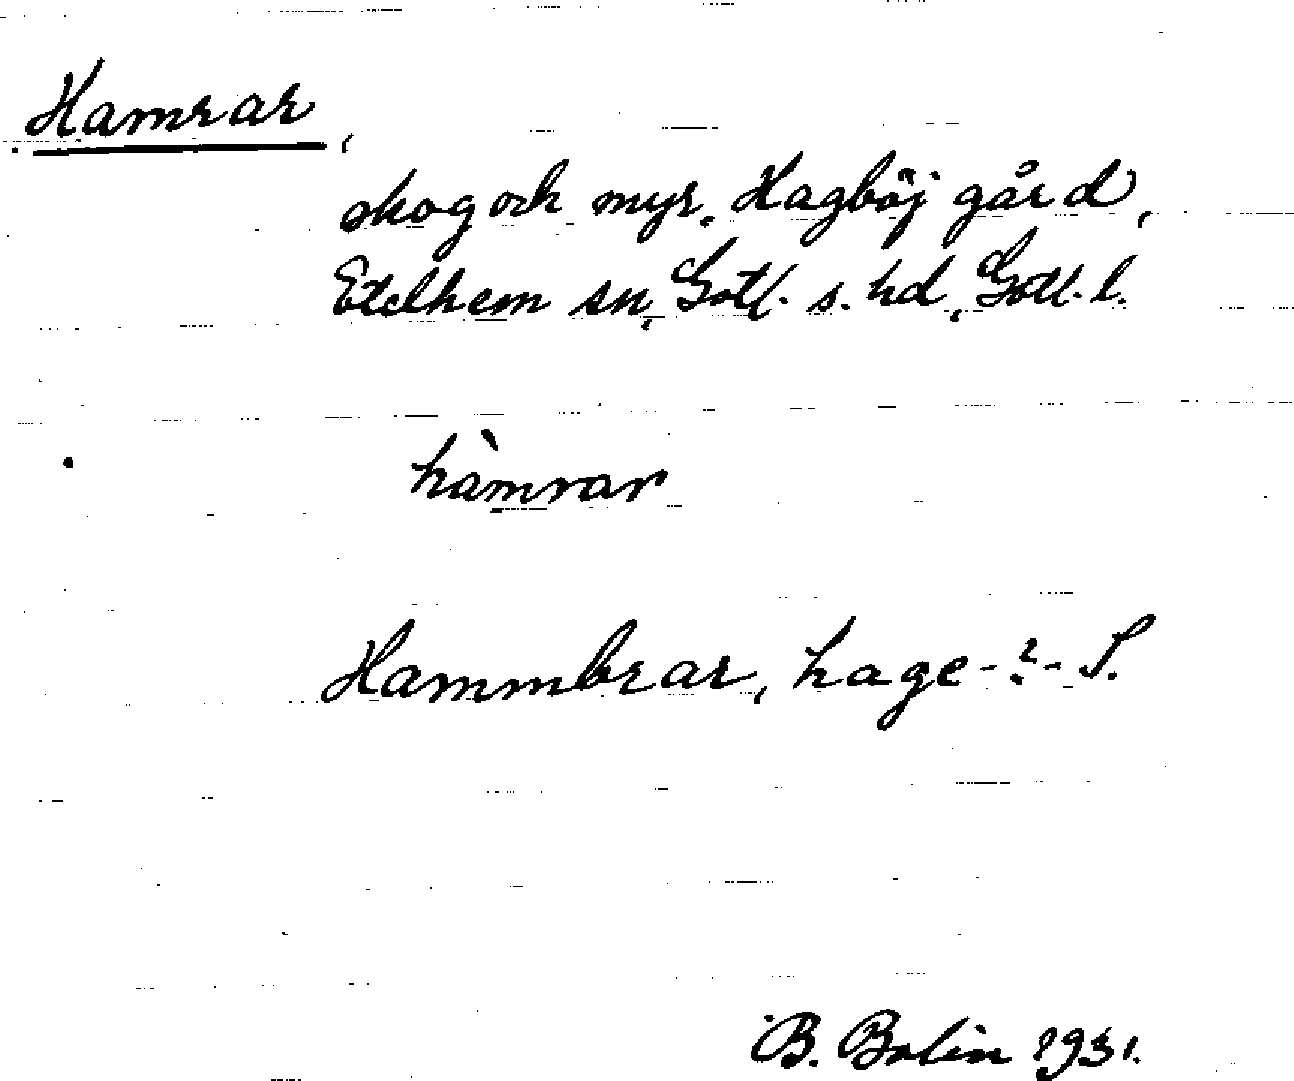 Hamrar,
skog och myr. Hagböj gård,
Etelhem sn, Gotl. s. hd, Gotl. l.
hàmrar
Hammbrar, hage - ? - S.
B. Bolin 1931.